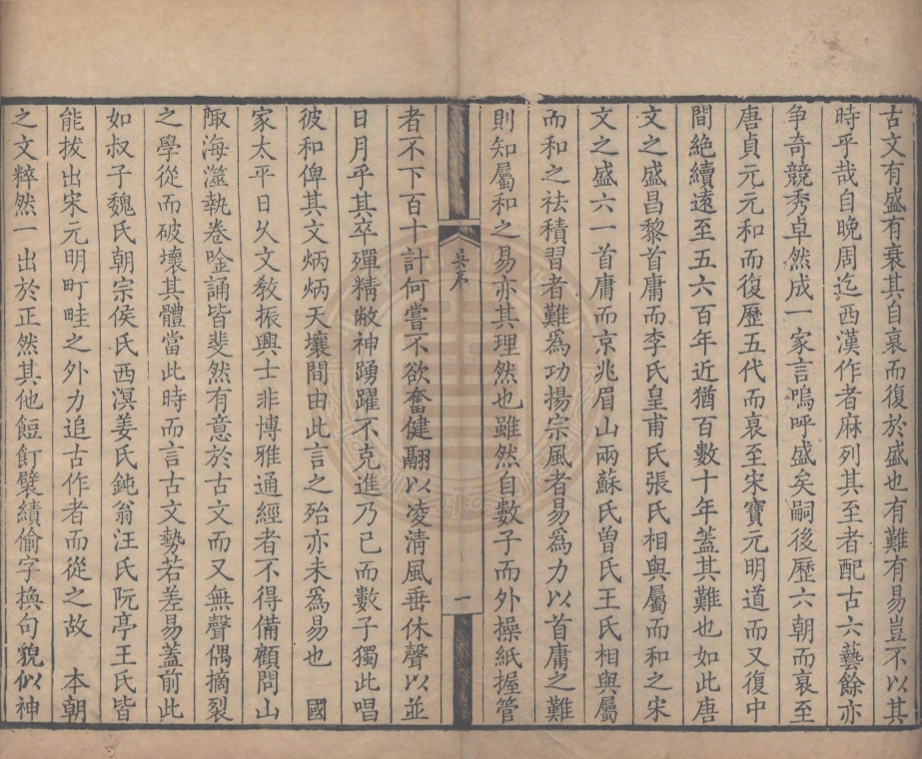 古文有盛有衰其自衰而復於盛也有難有易豈不以其
時乎哉自晚周迄西漢作者麻列其至者配古六藝餘亦
爭奇競秀卓然成一家言嗚呼盛矣嗣後歷六朝而衰至
唐貞元元和而復歷五代而衰至宋寶元明道而又復中
間絶續遠至五六百年近猶百數十年蓋其難也如此唐
文之盛昌黎首庸而李氏皇甫氏張氏相與屬而和之宋
文之盛六一首庸而京兆眉山兩蘇氏曾氏王氏相與屬
而和之袪積習者難為功揚宗風者易為力以首庸之難
則知屬和之易亦其理然也雖然自數子而外操紙握管
吳序
一
者不下百十計何嘗不欲奮健翮以凌清風垂休聲以並
日月乎其卒殫精敝神踴躍不克進乃已而數子獨此唱
彼和俾其文炳炳天壤間由此言之殆亦未為易也　國
家太平日乆文敎振興士非博雅通經者不得備顧問山
陬海澨執卷唫誦皆斐然有意於古文而又無聲偶摘裂
之學從而破壞其體當此時而言古文勢若差易蓋前此
如叔子魏氏朝宗侯氏西溟姜氏鈍翁汪氏阮亭王氏皆
能拔出宋元明町畦之外力追古作者而從之故　本朝
之文粹然一出於正然其他餖飣襞績偷字換句貌似神